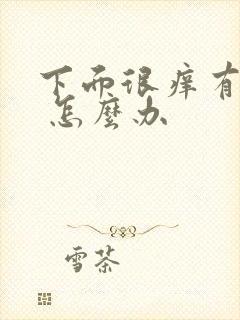 下面很痒有
怎麼办
雪茶